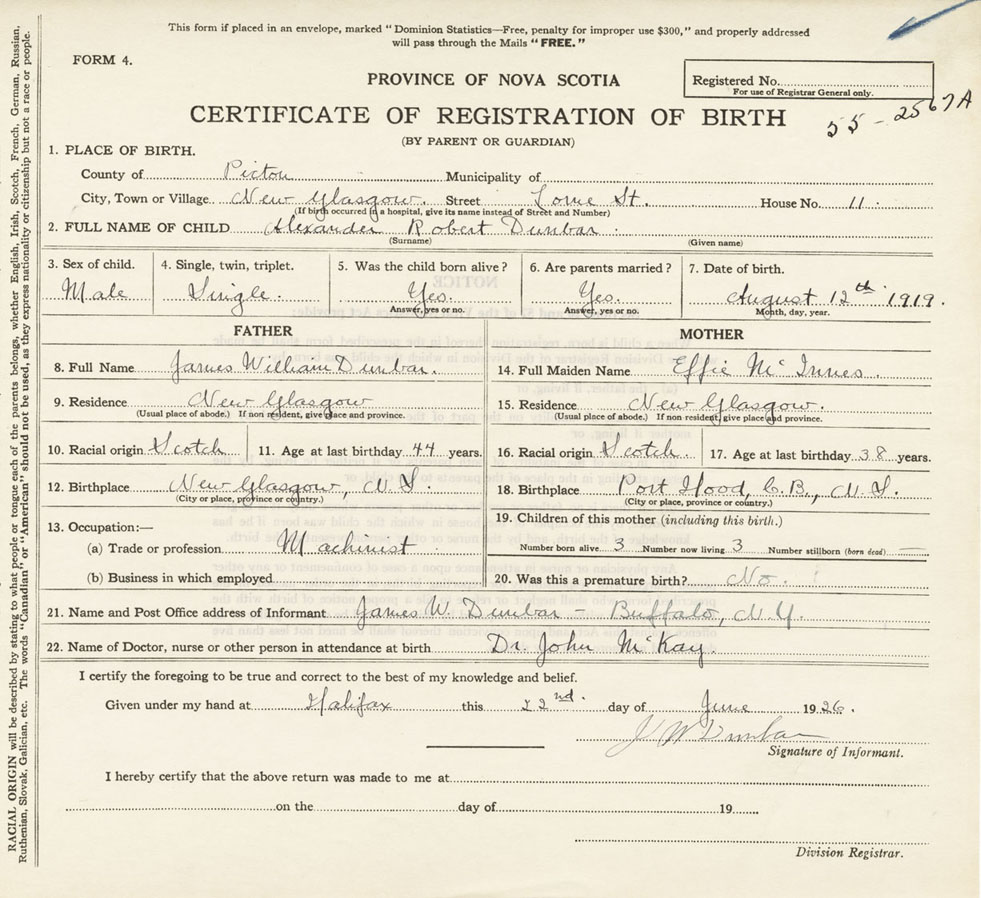 This form if placed in an envelope, marked "Dominion Statistics—Free, penalty for improper use $300," and properly addressed
will pass through the Mails "FREE."
FORM 4.
PROVINCE OF NOVA SCOTIA
Registered No.
For use of Registrar General only.
55 - 2567A
CERTIFICATE OF REGISTRATION OF BIRTH
(BY PARENT OR GUARDIAN)
1. PLACE OF BIRTH.
County of Pictou Municipality of
City, Town or Village New Glasgow. Street Lorne St. House No. 11.
(If birth occurred in a hospital, give its name instead of Street and Number)
2. FULL NAME OF CHILD Alexander Robert Dunbar.
(Surname) (Given name)
3. Sex of child. 4. Single, twin, triplet. 5. Was the child born alive? 6. Are parents married? 7. Date of birth.
Male Single. Yes. Yes. August 12th 1919.
Answer, yes or no. Answer, yes or no. Month, day, year.
FATHER MOTHER
8. Full Name James William Dunbar. 14. Full Maiden Name Effie McInnes.
9. Residence New Glasgow 15. Residence New Glasgow.
(Usual place of abode.) If non resident, give place and province. (Usual place of abode.) If non resident, give place and province.
10. Racial origin Scotch 11. Age at last birthday 44 years. 16. Racial origin Scotch 17. Age at last birthday 38 years.
12. Birthplace New Glasgow, N.S. 18. Birthplace Port Hood, C.B., N.S.
(City or place, province or country.) (City or place, province or country.)
13. Occupation:— 19. Children of this mother (including this birth.)
(a) Trade or profession Machinist Number born alive 3 Number now living 3 Number stillborn (born dead) —
(b) Business in which employed 20. Was this a premature birth? No.
21. Name and Post Office address of Informant James W. Dunbar - Buffalo, N.Y.
22. Name of Doctor, nurse or other person in attendance at birth Dr. John McKay.
I certify the foregoing to be true and correct to the best of my knowledge and belief.
Given under my hand at Halifax this 22nd. day of June 1926.
J W Dunbar
Signature of Informant.
I hereby certify that the above return was made to me at
on the day of 19
Division Registrar.
RACIAL ORIGIN will be described by stating to what people or tongue each of the parents belongs, whether English, Irish, Scotch, French, German, Russian,
Ruthenian, Slovak, Galician, etc. The words "Canadian" or "American" should not be used, as they express nationality or citizenship but not a race or people.